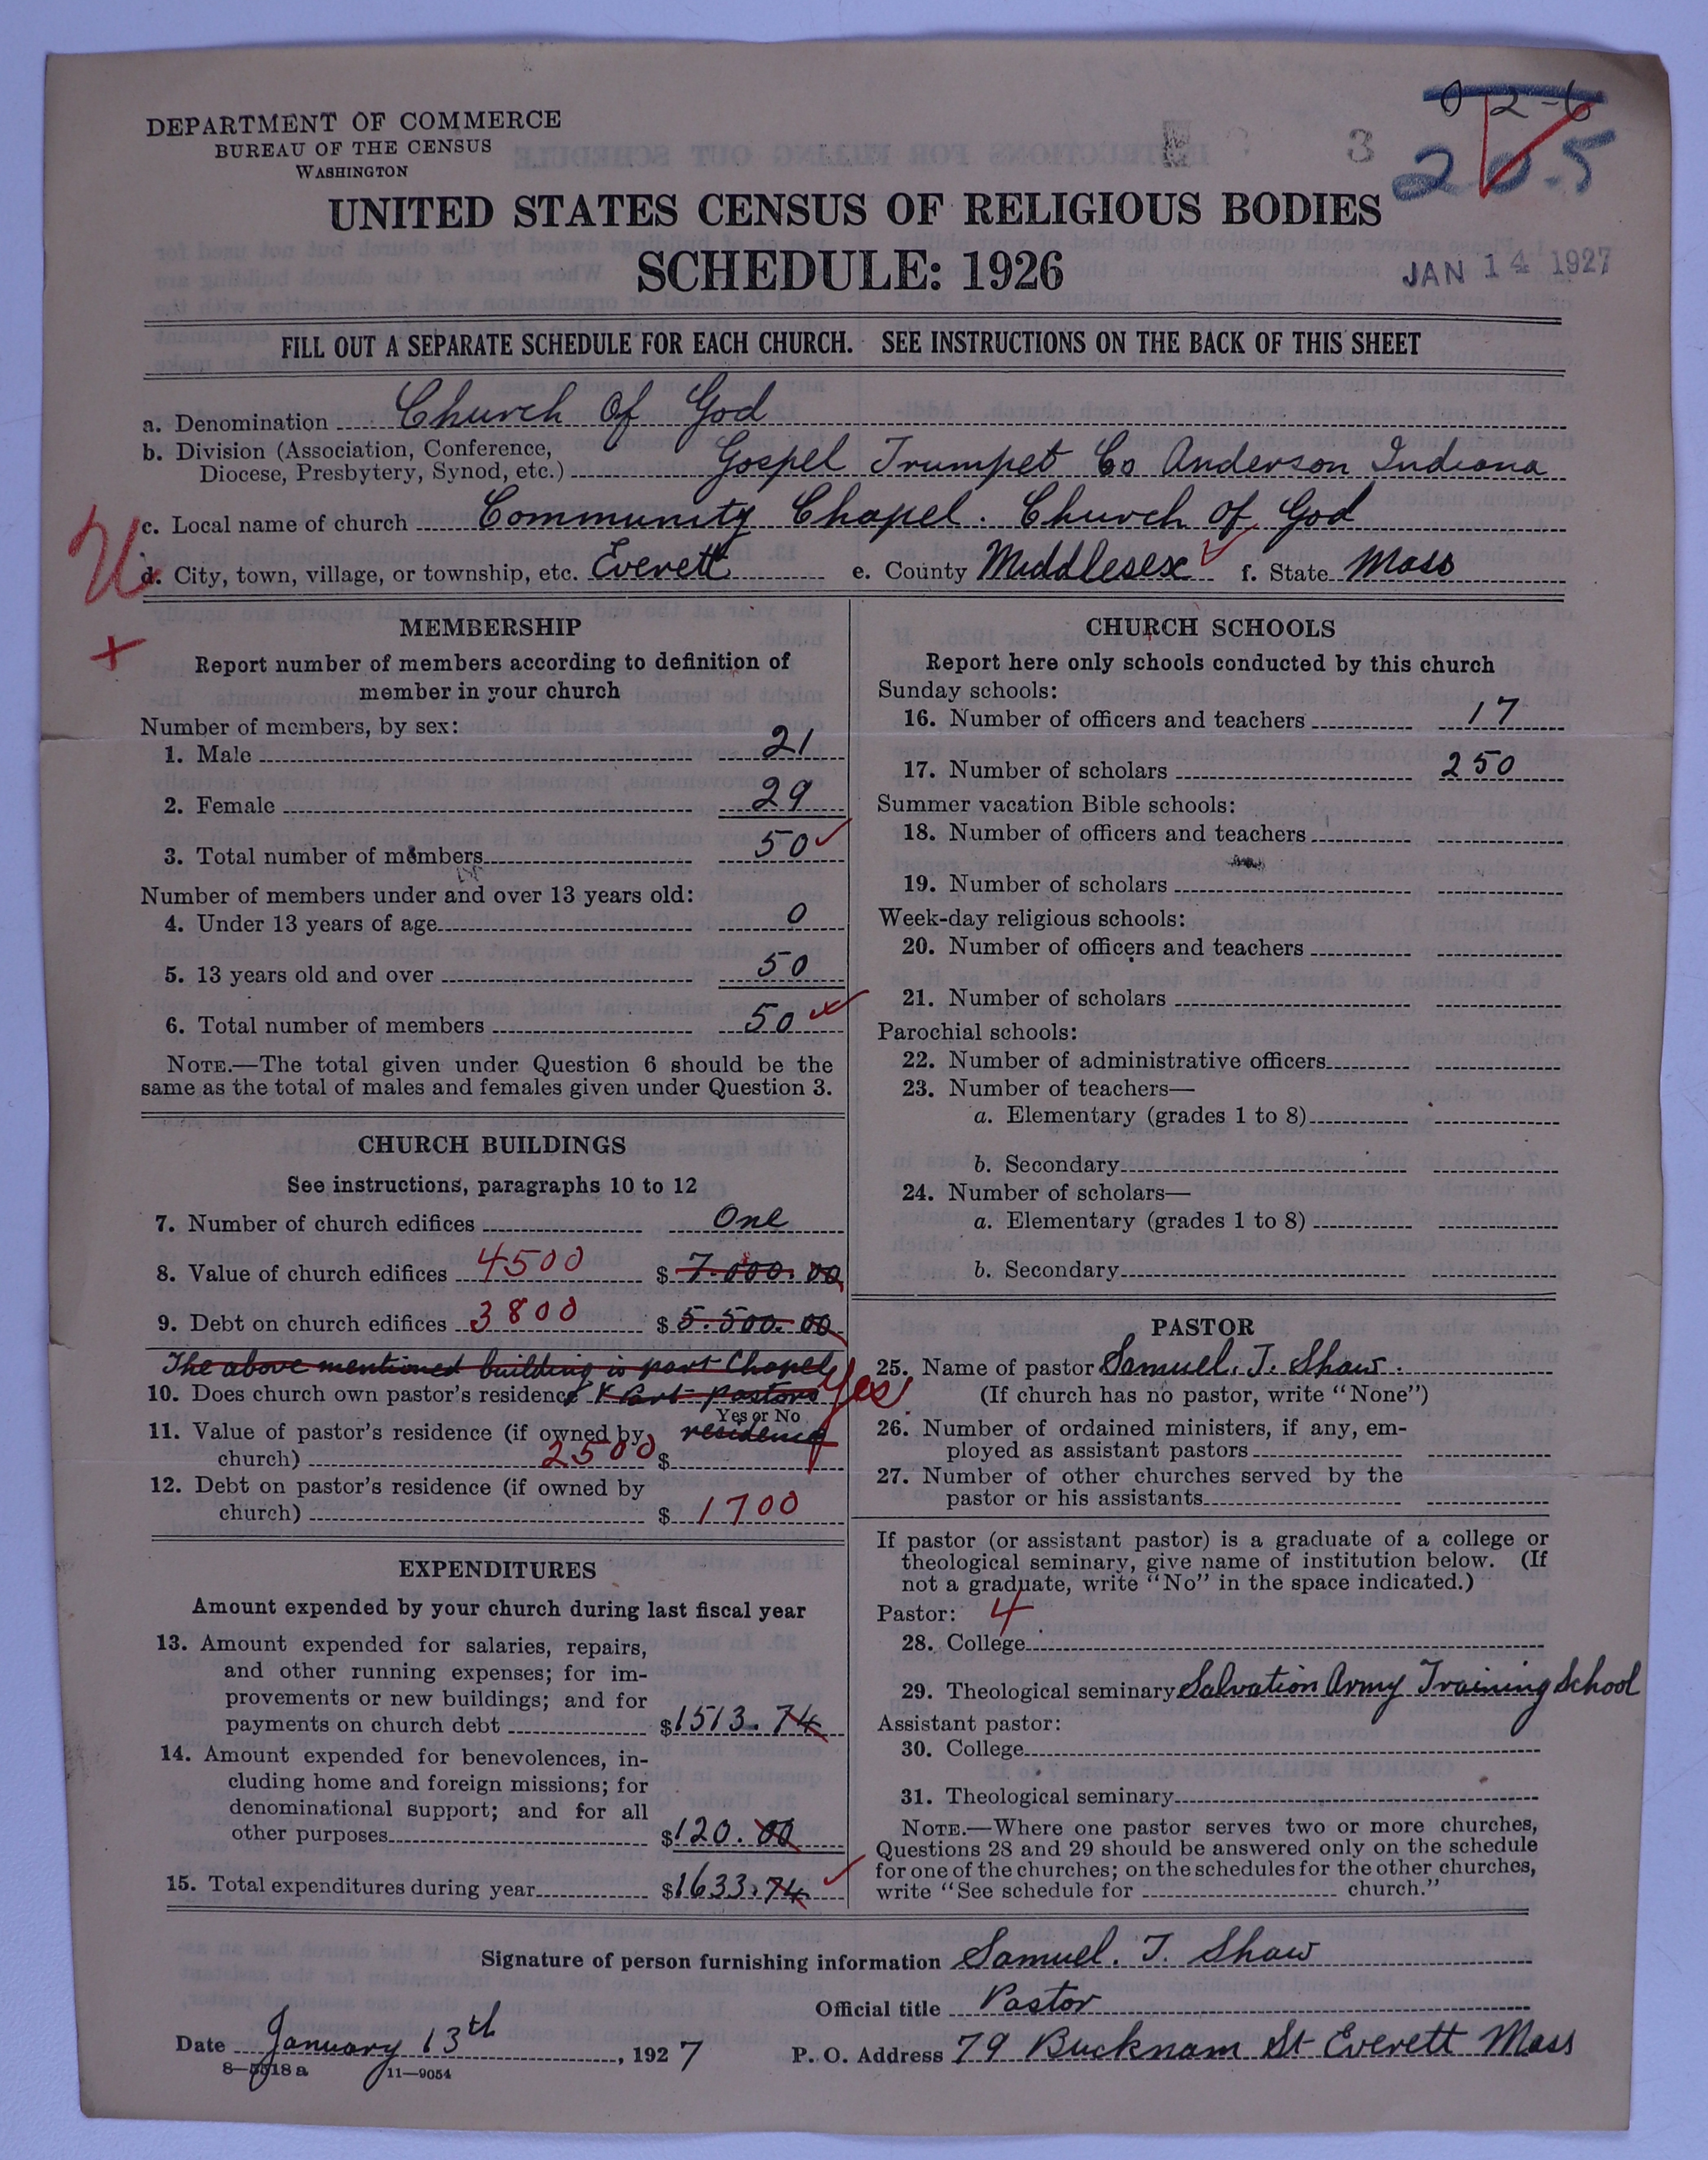 DEPARTMENT OF COMMERCE
BUREAU OF THE CENSUS
WASHINGTON
0 2-6
3
20-5
UNITED STATES CENSUS OF RELIGIOUS BODIES
SCHEDULE: 1926
JAN 14 1927
FILL OUT A SEPARATE SCHEDULE FOR EACH CHURCH. SEE INSTRUCTIONS ON THE BACK OF THIS SHEET
a. Denomination Church Of God
b. Division (Association, Conference,
Diocese, Presbytery, Synod, etc.) Gospel Trumpet Co Anderson Indiana
c. Local name of church Community Chapel. Church of God
d. City, town, village, or township, etc. Everett e. County Middlesex f. State Mass
MEMBERSHIP
Report number of members according to definition of
member in your church
Number of members, by sex:
1. Male 21
2. Female 29
3. Total number of members 50
Number of members under and over 13 years old:
4. Under 13 years of age 0
5. 13 years old and over 50
6. Total number of members 50
NOTE.—The total given under Question 6 should be the
same as the total of males and females given under Question 3.
CHURCH BUILDINGS
See instructions, paragraphs 10 to 12
7. Number of church edifices One
8. Value of church edifices 4500 $ 7.000.00
9. Debt on church edifices 3800 $ 5.500.00
The above mentioned building is part Chapel
10. Does church own pastor's residence & Part Pastors Yes
Yes or No
11. Value of pastor's residence (if owned by residence
church) 2500 $
12. Debt on pastor's residence (if owned by
church) $ 1700
EXPENDITURES
Amount expended by your church during last fiscal year
13. Amount expended for salaries, repairs,
and other running expenses; for im-
provements or new buildings; and for
payments on church debt $1513.74
14. Amount expended for benevolences, in-
cluding home and foreign missions; for
denominational support; and for all
other purposes $120.00
15. Total expenditures during year $1633.74
CHURCH SCHOOLS
Report here only schools conducted by this church
Sunday schools:
16. Number of officers and teachers 17
17. Number of scholars 250
Summer vacation Bible schools:
18. Number of officers and teachers
19. Number of scholars
Week-day religious schools:
20. Number of officers and teachers
21. Number of scholars
Parochial schools:
22. Number of administrative officers
23. Number of teachers—
a. Elementary (grades 1 to 8)
b. Secondary
24. Number of scholars—
a. Elementary (grades 1 to 8)
b. Secondary
PASTOR
25. Name of pastor Samuel. T. Shaw.
(If church has no pastor, write "None")
26. Number of ordained ministers, if any, em-
ployed as assistant pastors
27. Number of other churches served by the
pastor or his assistants
If pastor (or assistant pastor) is a graduate of a college or
theological seminary, give name of institution below. (If
not a graduate, write "No" in the space indicated.)
Pastor: 4
28. College
29. Theological seminary Salvation Army Training School
Assistant pastor:
30. College
31. Theological seminary
NOTE.—Where one pastor serves two or more churches,
Questions 28 and 29 should be answered only on the schedule
for one of the churches; on the schedules for the other churches,
write "See schedule for church."
Signature of person furnishing information Samuel. T. Shaw
Official title Pastor
Date January 13th, 1927 P. O. Address 79 Bucknam St Everett Mass
11—9054